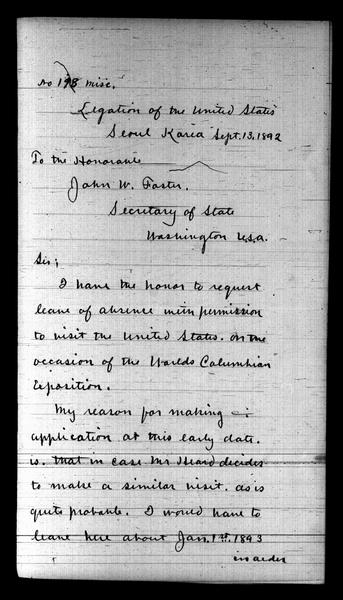 No 198 Misc.
Legation of the United States
Seoul Korea Sept. 13. 1892
To the Honorable
John W. Foster.
Secretary of State
Washington U.S.A.
Sir;
I have the honor to request
leave of absence with permission
to visit the United States. on the
occasion of the Worlds Columbian
Exposition.
My reason for making
application at this early date.
is. that in case Mr Heard decides
to make a similar visit. as is
quite probable. I would have to
leave here about Jan. 1st. 1893
in order